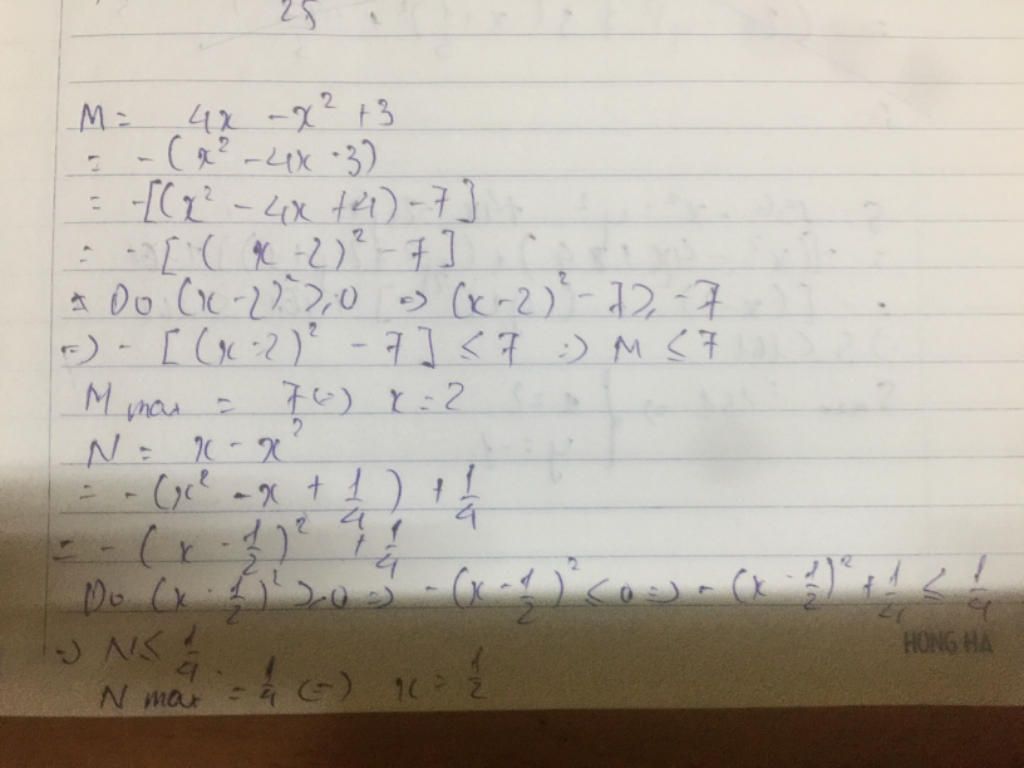 25
M = 4x - x² + 3
= -(x² - 4x - 3)
= -[(x² - 4x + 4) - 7]
= -[(x - 2)² - 7]
Do (x - 2)² ≥ 0 => (x - 2)² - 7 ≥ -7
=> - [(x - 2)² - 7] ≤ 7 => M ≤ 7
M max = 7 (=) x = 2
N = x - x²
= -(x² - x + 1/4) + 1/4
= -(x - 1/2)² + 1/4
Do (x - 1/2)² ≥ 0 => -(x - 1/2)² ≤ 0 => -(x - 1/2)² + 1/4 ≤ 1/4
=> N ≤ 1/4
HONG HA
N max = 1/4 (=) x = 1/2